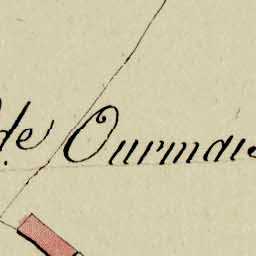 de Ourmais